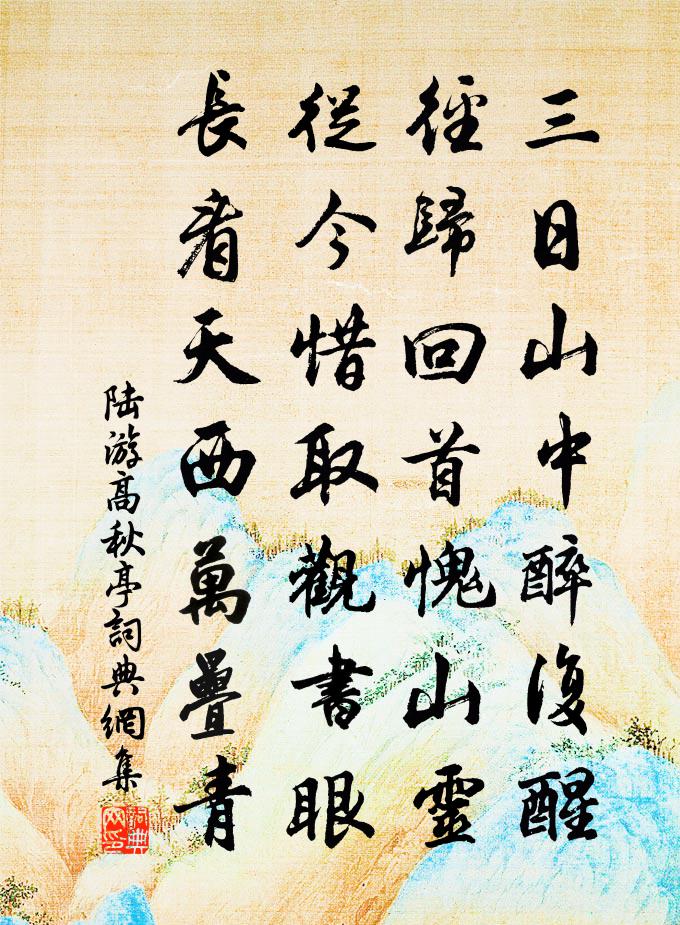 三日山中醉復醒
徑歸回首愧山靈
從今惜取觀書眼
長看天西萬疊青
陆游高秋亭詞典網集
詞典網印